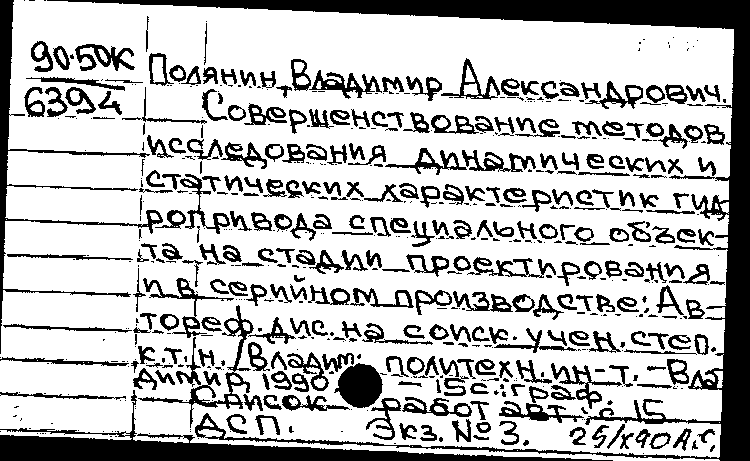 90-50К
6394
Полянин, Владимир Александрович.
Совершенствование методов
исследования динамических и
статических характеристик гид
ропривода специального объек-
та на стадии проектирования
и в серийном производстве: Ав-
тореф. дис. на соиск. учен. степ.
к.т.н. /Владим. политехн. ин-т. - Вла
димир, 1990 - 15 с.: граф.
Список работ авт.: с 15
ДСП. Экз. № 3. 25/X90 А.С.